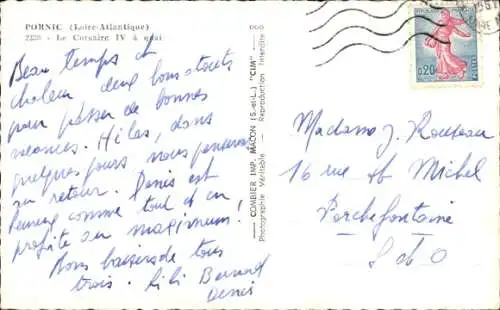 PORNIC (Loire-Atlantique)
2228 - Le Corsaire IV à quai
Beau temps et
chaleur deux bons atouts
pour passer de bonnes
vacances. Hélas, dans
quelques jours nous penserons
au retour. Denis est
heureux comme tout et en
profite au maximum.
Bons baisers de tous
trois. Lili Bernard
Denis
COMBIER IMP. MACON (S.-et-L.) "CIM"
Photographie Véritable - Reproduction Interdite
0,20
Madame J. Rousseau
16 rue St Michel
Porchefontaine
S et O